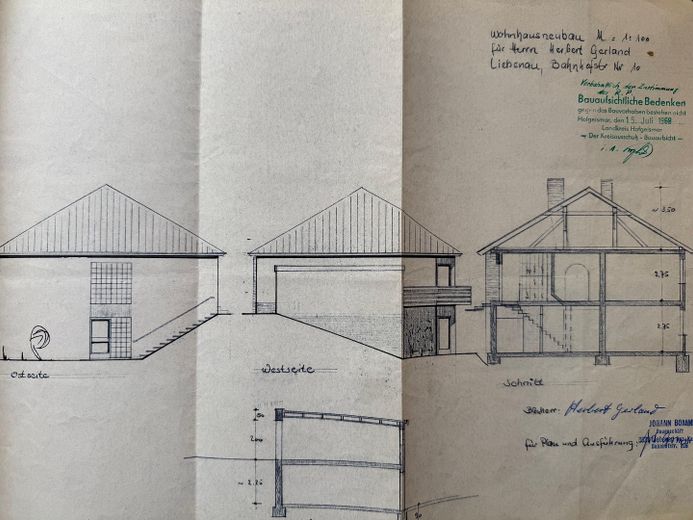 Wohnhausneubau M = 1:100
für Herrn Herbert Gerland
Liebenau, Bahnhofstr Nr 10
Vorbehaltlich der Zustimmung
des R.P.
Bauaufsichtliche Bedenken
gegen das Bauvorhaben bestehen nicht
Hofgeismar, den 15. Juli 1968
Landkreis Hofgeismar
– Der Kreisausschuß - Bauaufsicht –
i. A.
~ 3,50
2,75
2,75
Ostseite
Westseite
Schnitt
Bauherr: Herbert Gerland
für Plan und Ausführung:
JOHANN
Baugeschäft
50
2,00
~ 2,25